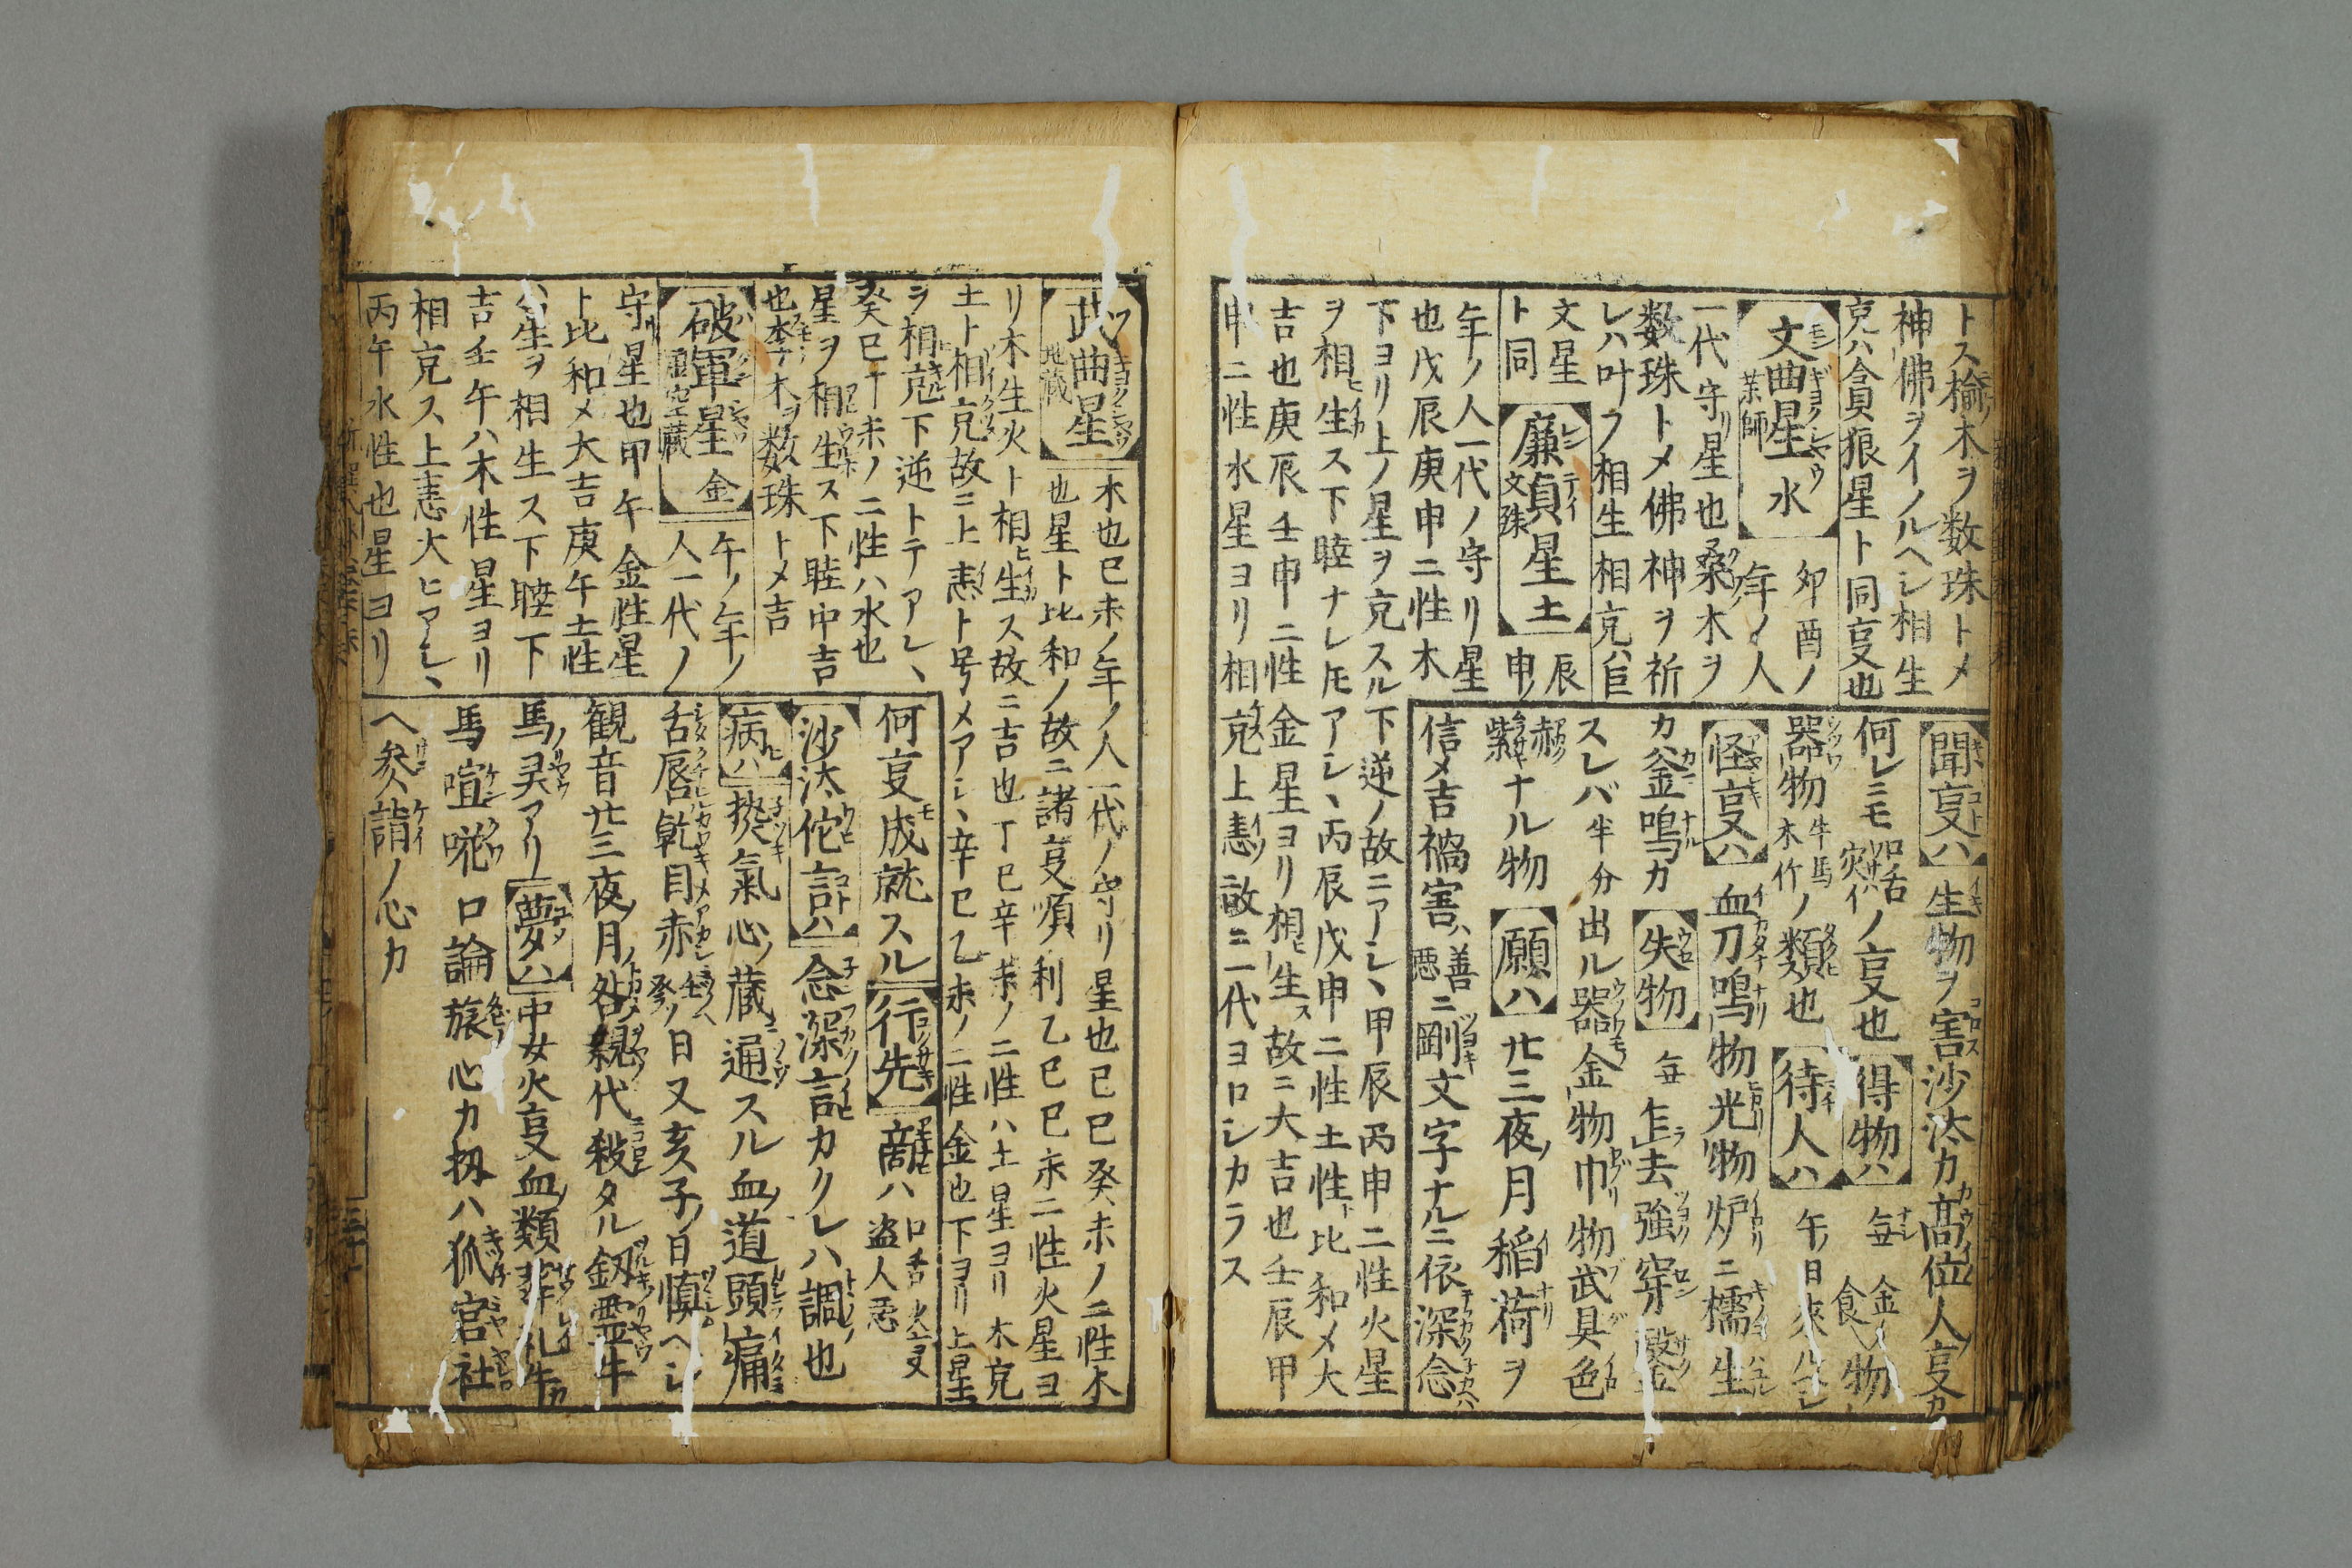 トス楡木ヲ数珠トメ
神佛ヲイノルヘシ相生
克ハ貪狼星ト同亊也
文曲星 水 卯酉ノ
薬師 年ノ人
一代守リ星也桑木ヲ
数珠トメ佛神ヲ祈
レハ叶フ相生相克ハ巨
文星 廉貞星 土 辰
ト同 文殊 申ノ
年ノ人一代ノ守リ星
也戊辰庚申ニ性木
下ヨリ上ノ星ヲ克スル下逆ノ故ニアシヽ甲辰丙申二性火星
ヲ相生ス下睦ナレ𪜈アシヽ丙辰戊申二性土性ト比和メ大
吉也庚辰壬申二性金星ヨリ相生ス故ニ大吉也壬辰甲
申ニ性水星ヨリ相克上恚故ニ一代ヨロシカラス
聞亊ハ 生物ヲ害沙汰カ髙位人亊カ
何レニモ 口舌 災 ノ亊也 得物ハ 毎 金 食 物
器物 牛馬 木竹 ノ類也 待人ハ 午ノ日来ルヘシ
怪亊ハ 血刀鳴物光物炉ニ檽生
カ釜鳴カ 失物 毎 乍去強穿鑿
スレバ半分出ル器金物巾物武具色
赧紫ナル物 願ハ 廿三夜ノ月稲荷ヲ
信メ吉禍害ハ 善悪 ニ剛文字ナルニ依深念
武曲星 地蔵 木也巳未ノ年ノ人一代ノ守リ星也己巳癸未ノ二性木
也星ト比和ノ故ニ諸亊順ノ利乙巳己未二性火星ヨ
リ木生火ト相生ス故ニ吉也丁巳辛未ノ二性ハ土星ヨリ木克
土ト相克故ニ上恚ト号メアシヽ辛巳乙未ノ二性金也下ヨリ上星
ヲ相克下逆トテアシヽ
癸巳丁未ノ二性ハ水也
星ヲ相生ス下睦中吉
也李ノ木ヲ数珠トメ吉
破軍星 金 午ノ年ノ
虚空蔵 人一代ノ
守リ星也甲午金性星
ト比和メ大吉庚午土性
ハ生ヲ相生ス下睦下
吉壬午ハ木性星ヨリ
相克ス上恚大ヒアシヽ
丙午水性也星ヨリ
何亊モ成就スル 行先 敵ハ 口舌 盗人 火亊 悪
沙汰佗言ハ 念深言カクレハ調也
病ハ 揆氣心ノ蔵通スル血ノ道頭痛
舌唇乾目赤シ壬癸ノ日又亥子ノ日慎ヘシ
観音廿三夜ノ月咎親代殺タル釼霊牛
馬ノ灵アリ 夢ハ 中女火亊血ノ類非礼牛カ
馬喧𠵅口論旅心カ扨ハ狐宮社
ヘ参詣ノ心カ